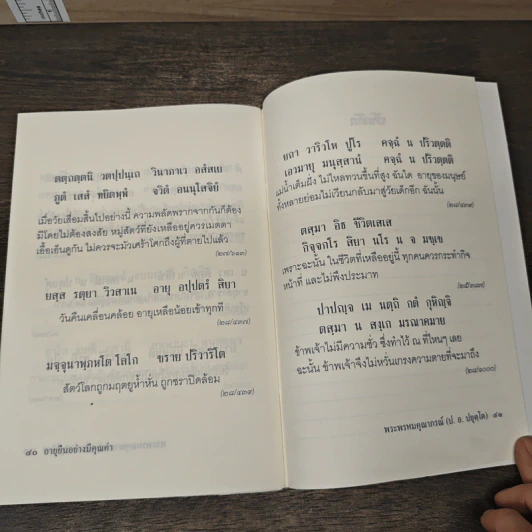 ตตฺถตฺตนิ วตปฺปนฺเถ วินาภาเว อสํสเย
ภูตํ เสสํ ทยิตพฺพํ จวิตํ อนนุโสจิยํ
เมื่อวัยเสื่อมสิ้นไปอย่างนี้ ความพลัดพรากจากกันก็ต้อง
มีโดยไม่ต้องสงสัย หมู่สัตว์ที่ยังเหลืออยู่ควรเมตตา
เอื้อเอ็นดูกัน ไม่ควรจะมัวเศร้าโศกถึงผู้ที่ตายไปแล้ว
(๒๗/๖๑๓)
ยสฺส รตฺยา วิวสาเน อายุ อปฺปตรํ สิยา
วันคืนเคลื่อนคล้อย อายุเหลือน้อยเข้าทุกที
(๒๘/๔๓๗)
มจฺจุนาพฺภหโต โลโก ชราย ปริวาริโต
สัตว์โลกถูกมฤตยูห้ำหั่น ถูกชราปิดล้อม
(๒๘/๔๓๙)
๔๐ อายุยืนอย่างมีคุณค่า
ยถา วาริวโห ปูโร คจฺฉํ น ปริวตฺตติ
เอวมายุ มนุสฺสานํ คจฺฉํ น ปริวตฺตติ
แม่น้ำเต็มฝั่ง ไม่ไหลทวนขึ้นที่สูง ฉันใด อายุของมนุษย์
ทั้งหลายย่อมไม่เวียนกลับมาสู่วัยเด็กอีก ฉันนั้น
(๒๘/๔๓๙)
ตสฺมา อิธ ชีวิตเสเส
กิจฺจกโร สิยา นโร น จ มชฺเช
เพราะฉะนั้น ในชีวิตที่เหลืออยู่นี้ ทุกคนควรกระทำกิจ
หน้าที่ และไม่พึงประมาท
ปาปญฺจ เม นตฺถิ กตํ กุหิญฺจิ
ตสฺมา น สงฺเก มรณาคมาย
ข้าพเจ้าไม่มีความชั่ว ซึ่งทำไว้ ณ ที่ไหนๆ เลย
ฉะนั้น ข้าพเจ้าจึงไม่หวั่นเกรงความตายที่จะมาถึง
(๒๘/๑๐๐๐)
พระพรหมคุณาภรณ์ (ป. อ. ปยุตฺโต) ๔๑